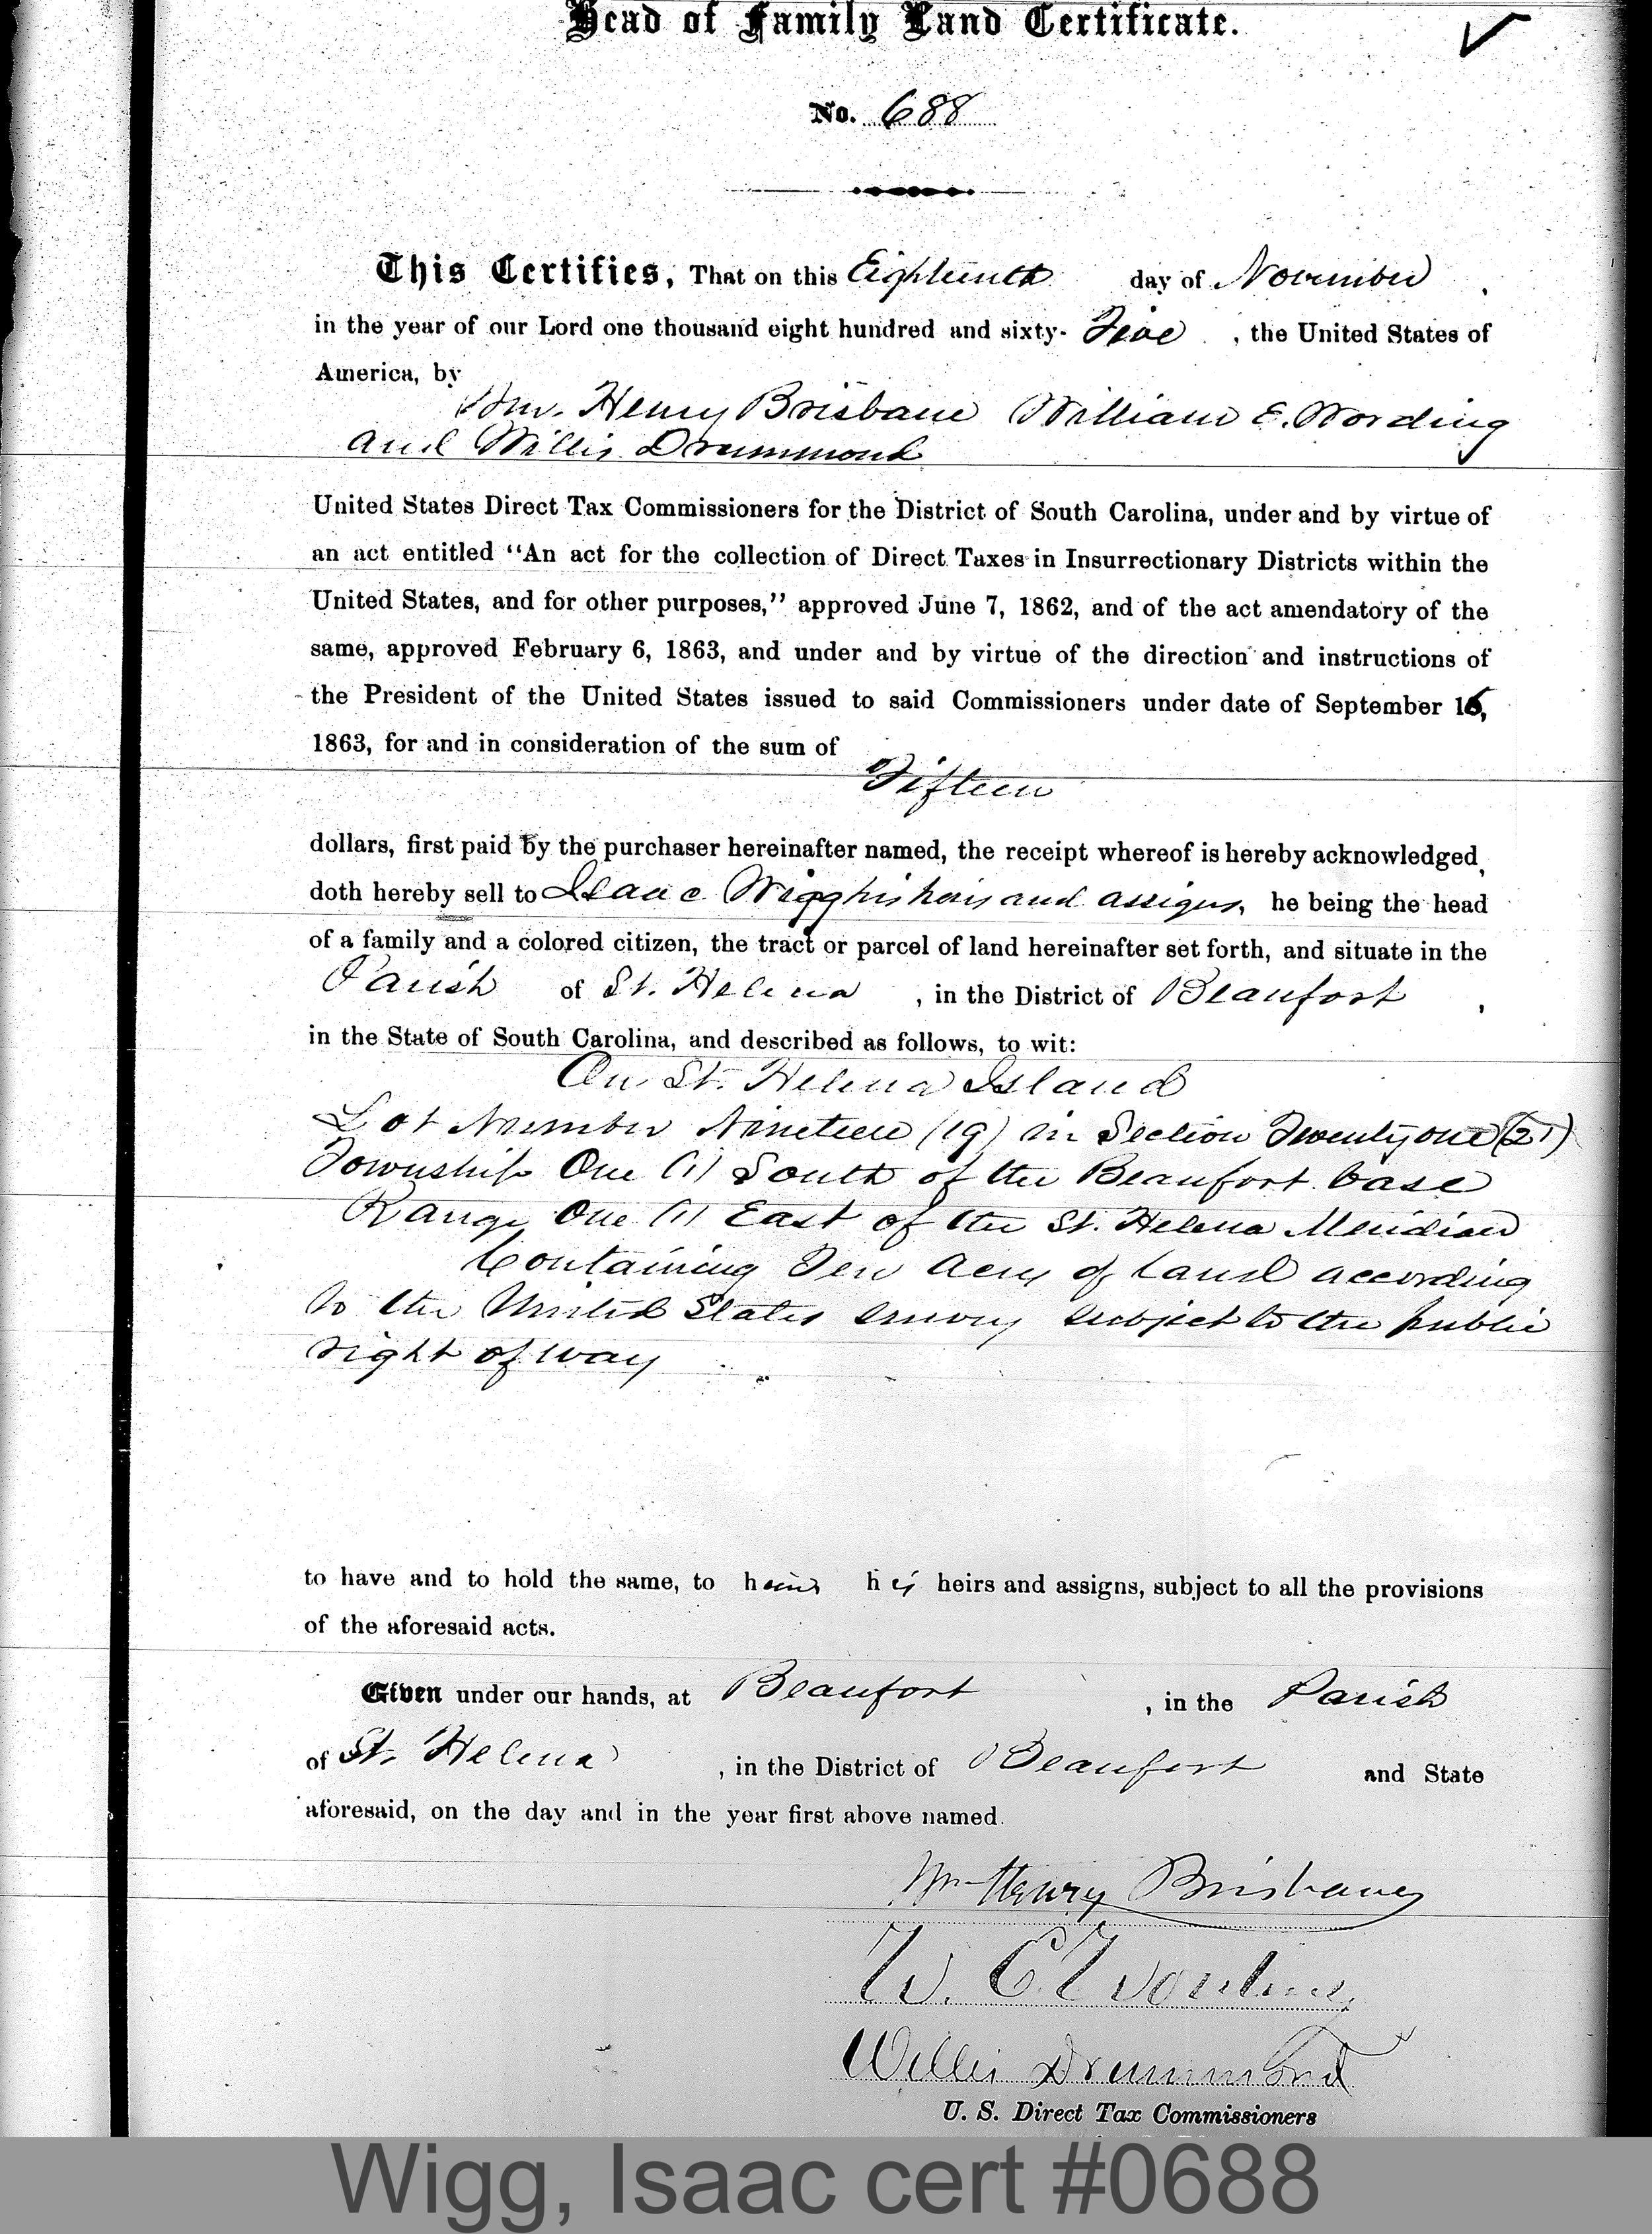 Head of Family Land Certificate.
No. 688
This Certifies, That on this Eighteenth day of November,
in the year of our Lord one thousand eight hundred and sixty- Five, the United States of
America, by
Wm. Henry Brisbane William E. Wording
and Willis Drummond
United States Direct Tax Commissioners for the District of South Carolina, under and by virtue of
an act entitled "An act for the collection of Direct Taxes in Insurrectionary Districts within the
United States, and for other purposes," approved June 7, 1862, and of the act amendatory of the
same, approved February 6, 1863, and under and by virtue of the direction and instructions of
the President of the United States issued to said Commissioners under date of September 16,
1863, for and in consideration of the sum of
Fifteen
dollars, first paid by the purchaser hereinafter named, the receipt whereof is hereby acknowledged,
doth hereby sell to Isaac Wigg his heirs and assigns, he being the head
of a family and a colored citizen, the tract or parcel of land hereinafter set forth, and situate in the
Parish of St. Helena, in the District of Beaufort,
in the State of South Carolina, and described as follows, to wit:
On St. Helena Island
Lot Number Nineteen (19) in Section Twenty one (21)
Township One (1) South of the Beaufort base
Range One (1) East of the St. Helena Meridian
Containing Ten Acres of land according
to the United States survey subject to the public
right of way
to have and to hold the same, to him his heirs and assigns, subject to all the provisions
of the aforesaid acts.
Given under our hands, at Beaufort, in the Parish
of St. Helena, in the District of Beaufort and State
aforesaid, on the day and in the year first above named.
Wm Henry Brisbane
W. E. Wording
Willis Drummond
U. S. Direct Tax Commissioners
Wigg, Isaac cert #0688